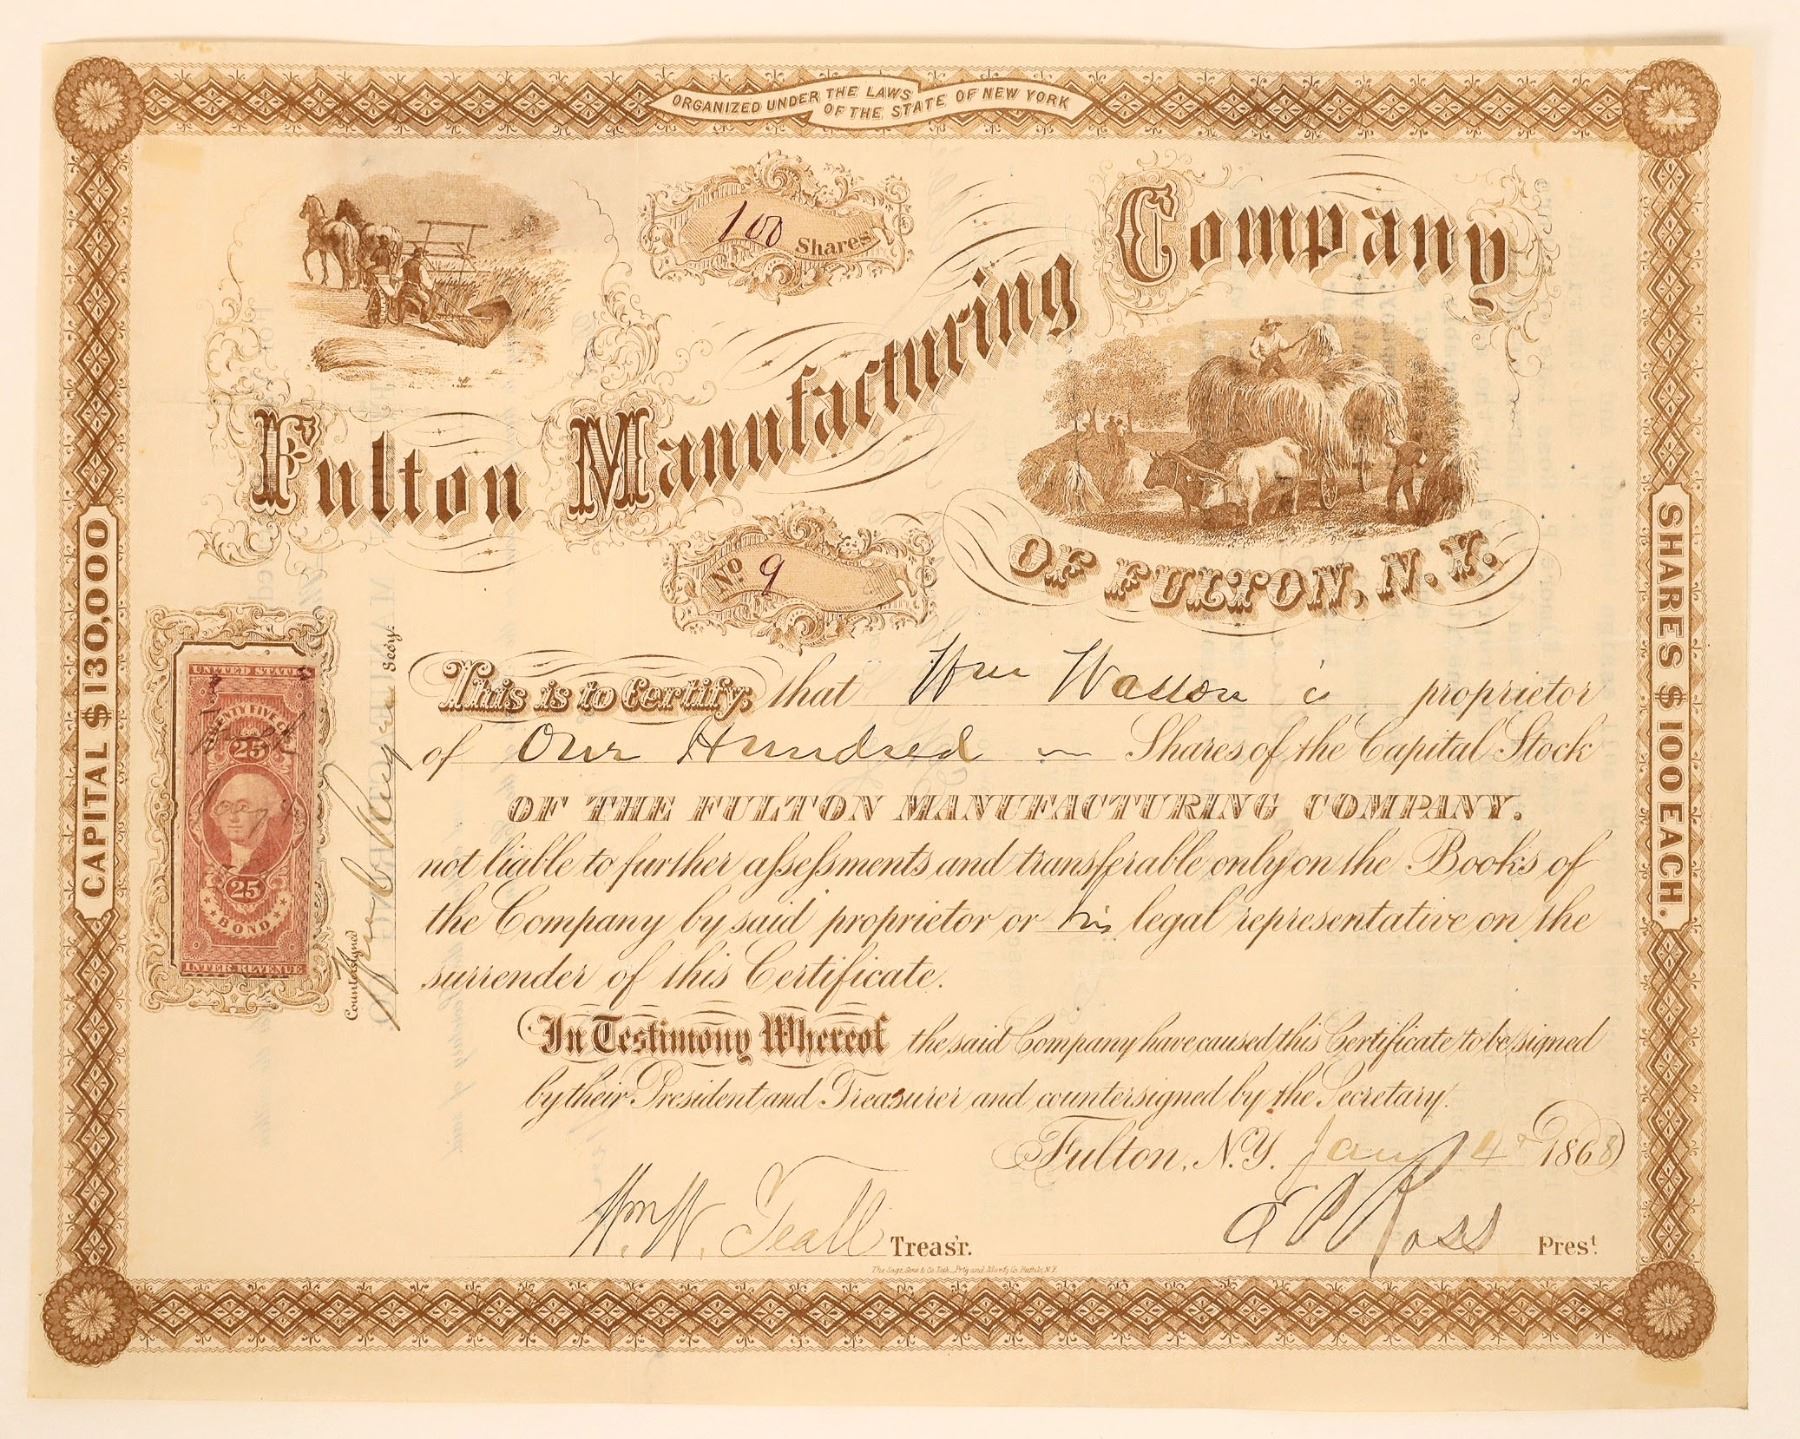 ORGANIZED UNDER THE LAWS OF THE STATE OF NEW YORK
100 Shares
Fulton Manufacturing Company
OF FULTON, N.Y.
No. 9
CAPITAL $130,000
SHARES $100 EACH.
UNITED STATES
TWENTY FIVE
25
25
BOND
INTER. REVENUE
Countersigned
Secy.
This is to Certify, that Wm Wasson is proprietor
of One Hundred Shares of the Capital Stock
OF THE FULTON MANUFACTURING COMPANY.
not liable to further assessments and transferable only on the Books of
the Company by said proprietor or his legal representative on the
surrender of this Certificate.
In Testimony Whereof the said Company have caused this Certificate to be signed
by their President and Treasurer and countersigned by the Secretary.
Fulton, N.Y. Jany 4th 1868
Wm W. Teall Treas'r.
E P Ross Prest.
The Sage, Sons & Co. Lith.